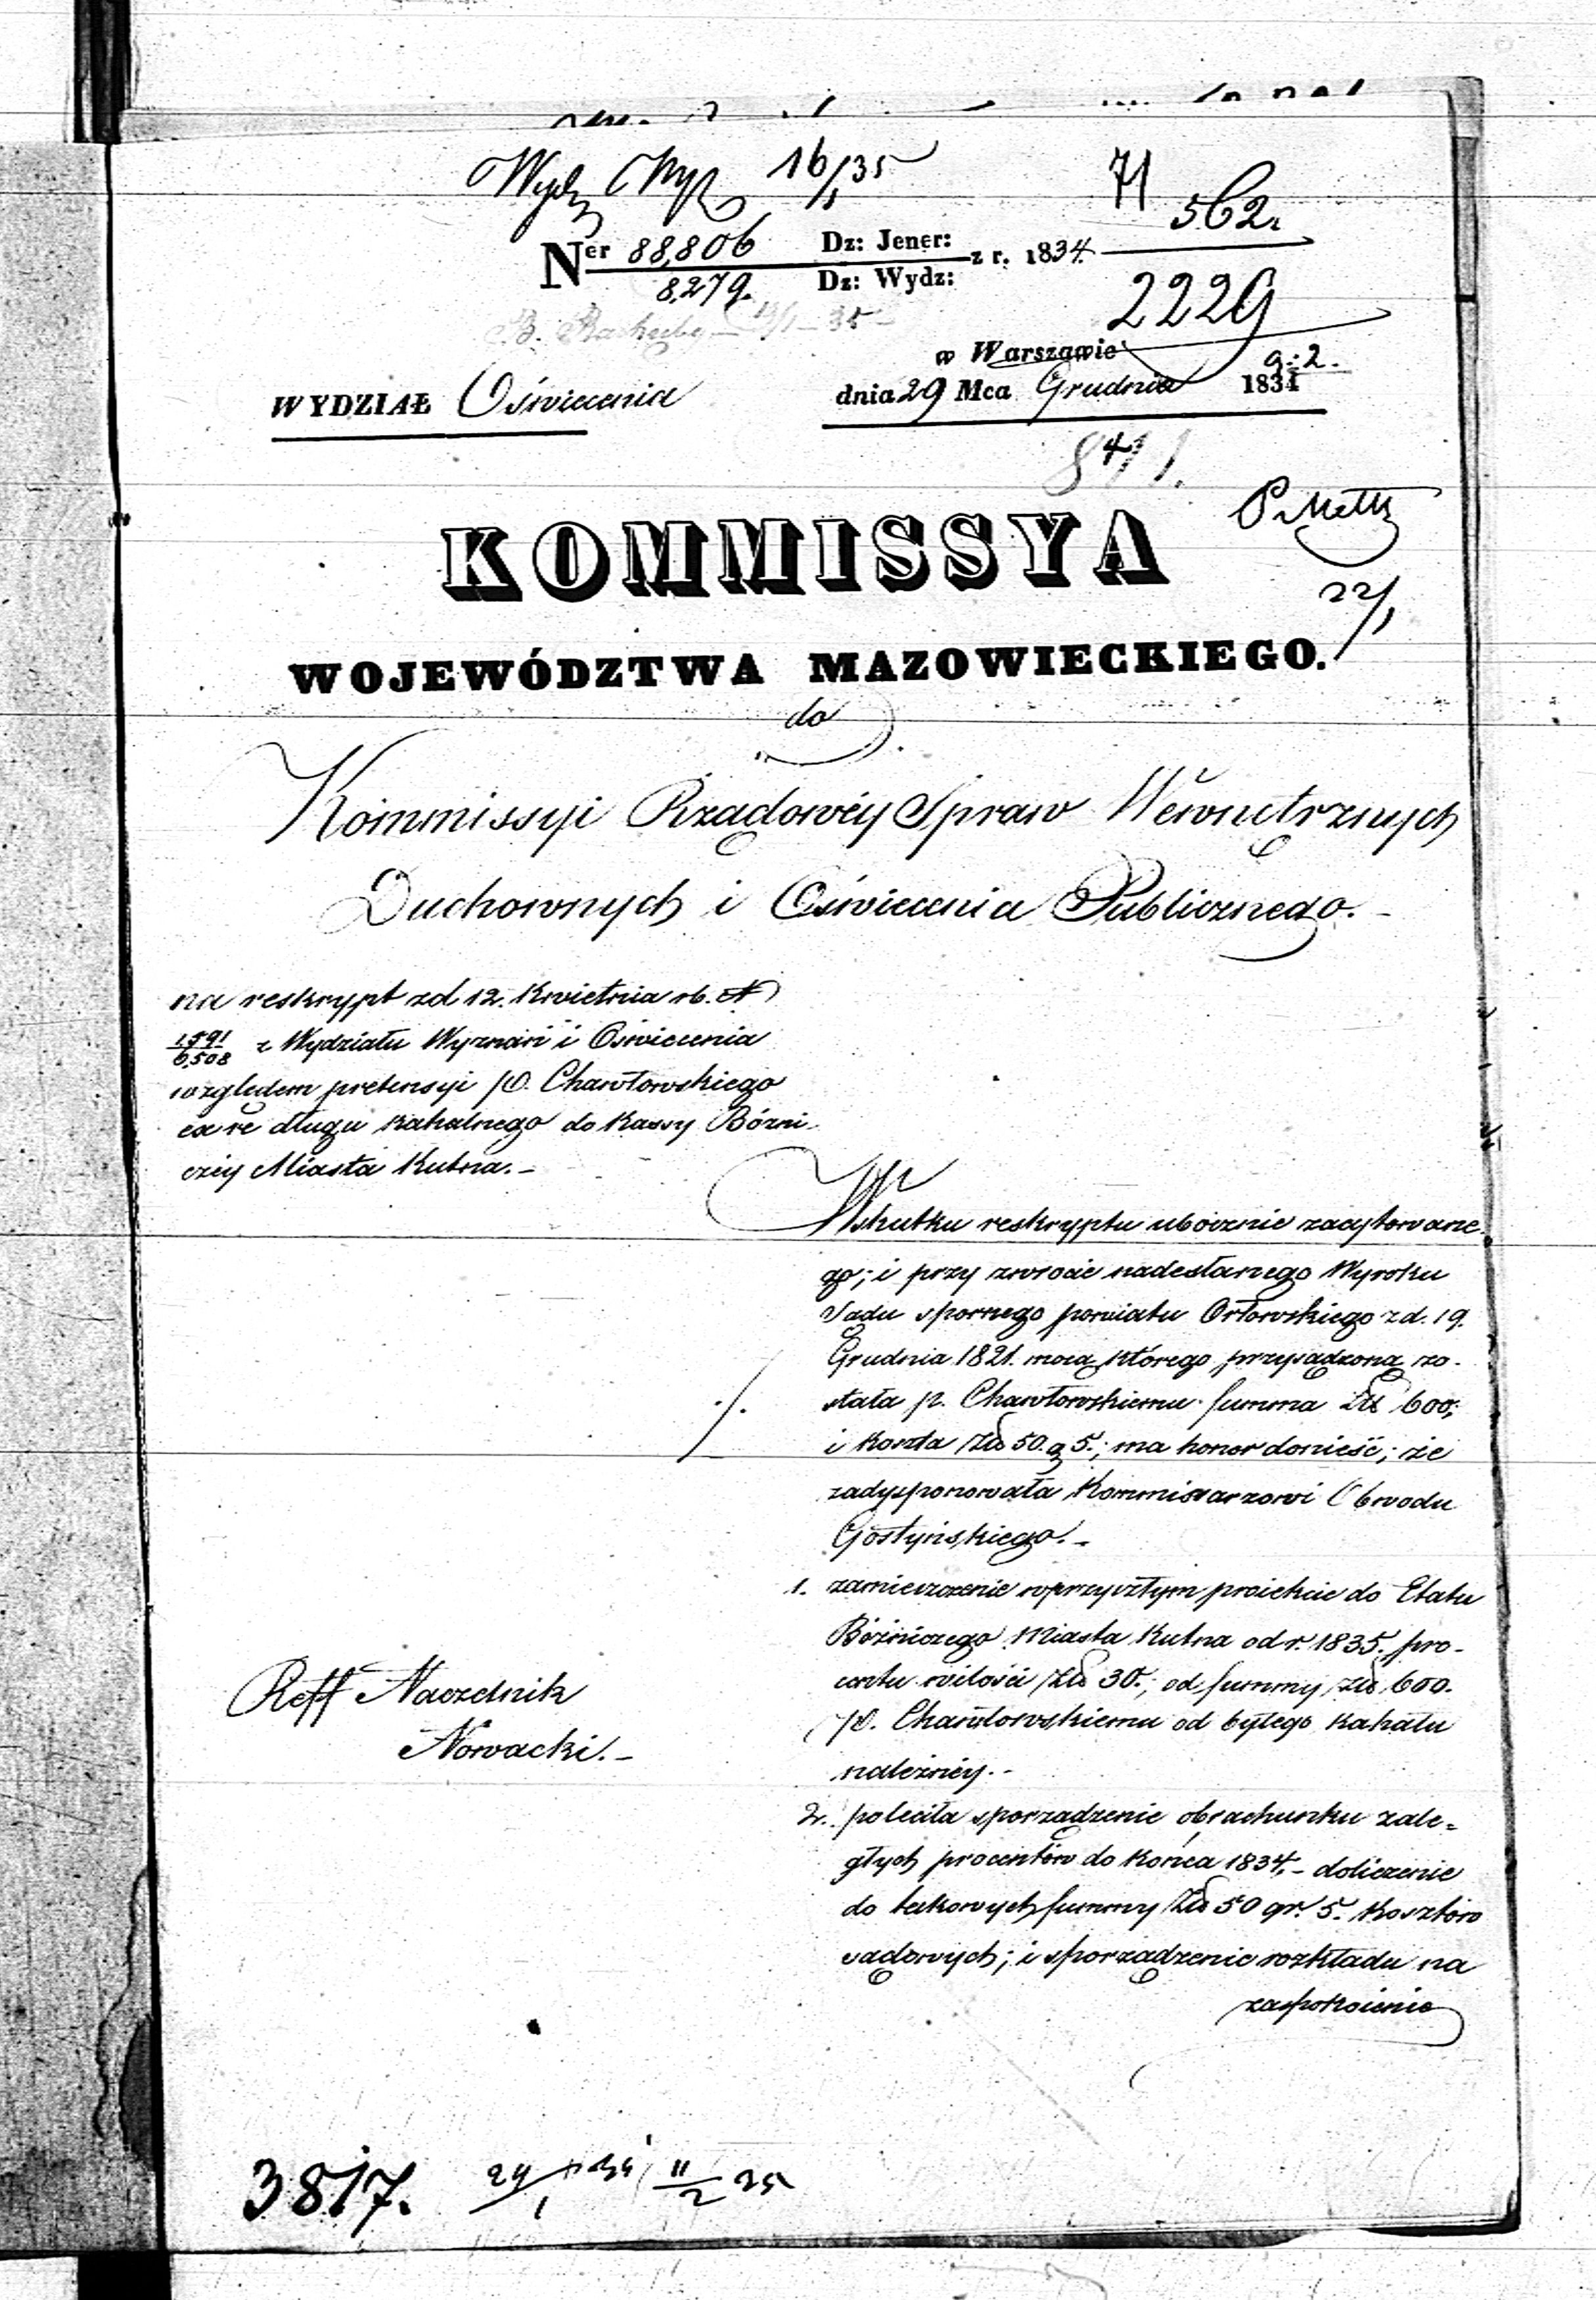 Wydz Wyz 16/1 35
71
562
Ner 88,806 Dz: Jener: z r. 1834.
8,279. Dz: Wydz:
2229
w Warszawie
g: 2.
WYDZIAŁ Oświecenia
dnia 29 Mca Grudnia 1834
84/1.
KOMMISSYA
22/1
WOJEWÓDZTWA MAZOWIECKIEGO.
do
Kommissyi Rządowéy Spraw Wewnętrznych
Duchownych i Oświecenia Publicznego.
na reskrypt zd 12. Kwietnia rb. N
1591/6,508 z Wydziału Wyznań i Oświecenia
względem pretensyi P. Chawłowskiego
ex re długu kahalnego do Kassy Bóżni-
czéy Miasta Kutna.-
Wskutku reskryptu ubocznie zacytowane-
go; i przy zwrocie nadesłanego Wyroku
Sądu spornego powiatu Orłowskiego z d. 19.
Grudnia 1821. mocą którego przysądzona zo-
stała p. Chawłowskiemu summa Złp 600;
i koszta Złp 50. g 5.; ma honor donieść; że
zadysponowała Kommissarzowi Obwodu
Gostyńskiego.-
1. zamieszczenie w przyszłym proiekcie do Etatu
Bóźniczego Miasta Kutna od r. 1835. pro-
centu wilości Złp 30.; od summy Złp 600.
P. Chawłowskiemu od byłego Kahału
należnéy.-
2. poleciła sporządzenie obrachunku zale-
głych procentów do końca 1834.- doliczenie
do takowych summy Złp 50 gr. 5. kosztów
sądowych; i sporządzenie rozkładu na
zaspokoienie
Reff Naczelnik
Nowacki.-
3817.
24/1 11/2 35